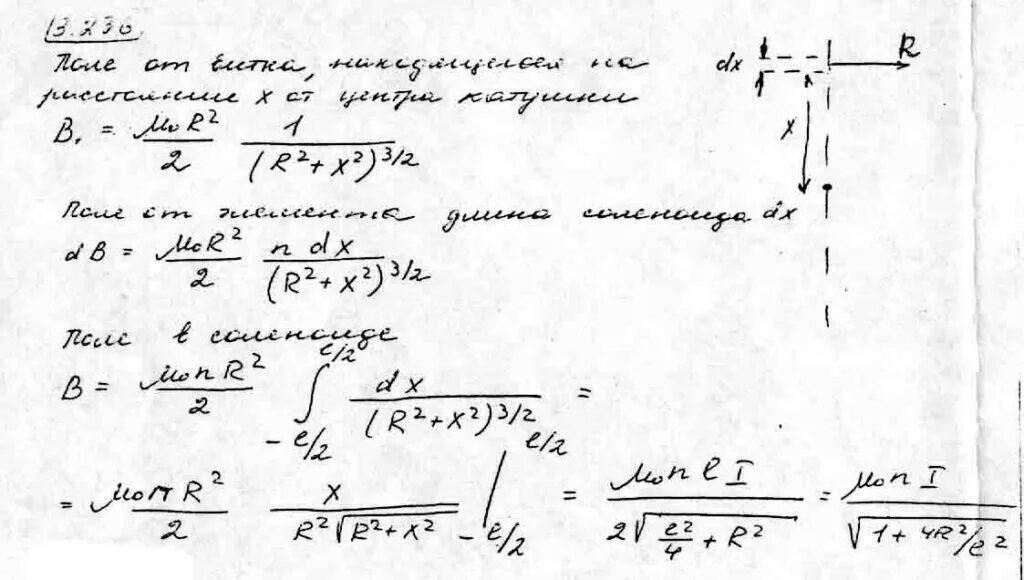 3.236.
Поле от витка, находящегося на
расстояние x от центра катушки
B₁ = μ₀R²/2 · 1/(R²+x²)^3/2
dx
R
x
Поле от элемента длина соленоида dx
dB = μ₀R²/2 · n dx/(R²+x²)^3/2
Поле в соленоиде
B = μ₀nR²/2 ∫_{-ℓ/2}^{ℓ/2} dx/(R²+x²)^3/2 =
= μ₀nR²/2 · x/(R²√(R²+x²)) |_{-ℓ/2}^{ℓ/2} = μ₀nℓI/(2√(ℓ²/4 + R²)) = μ₀nI/√(1+4R²/ℓ²)